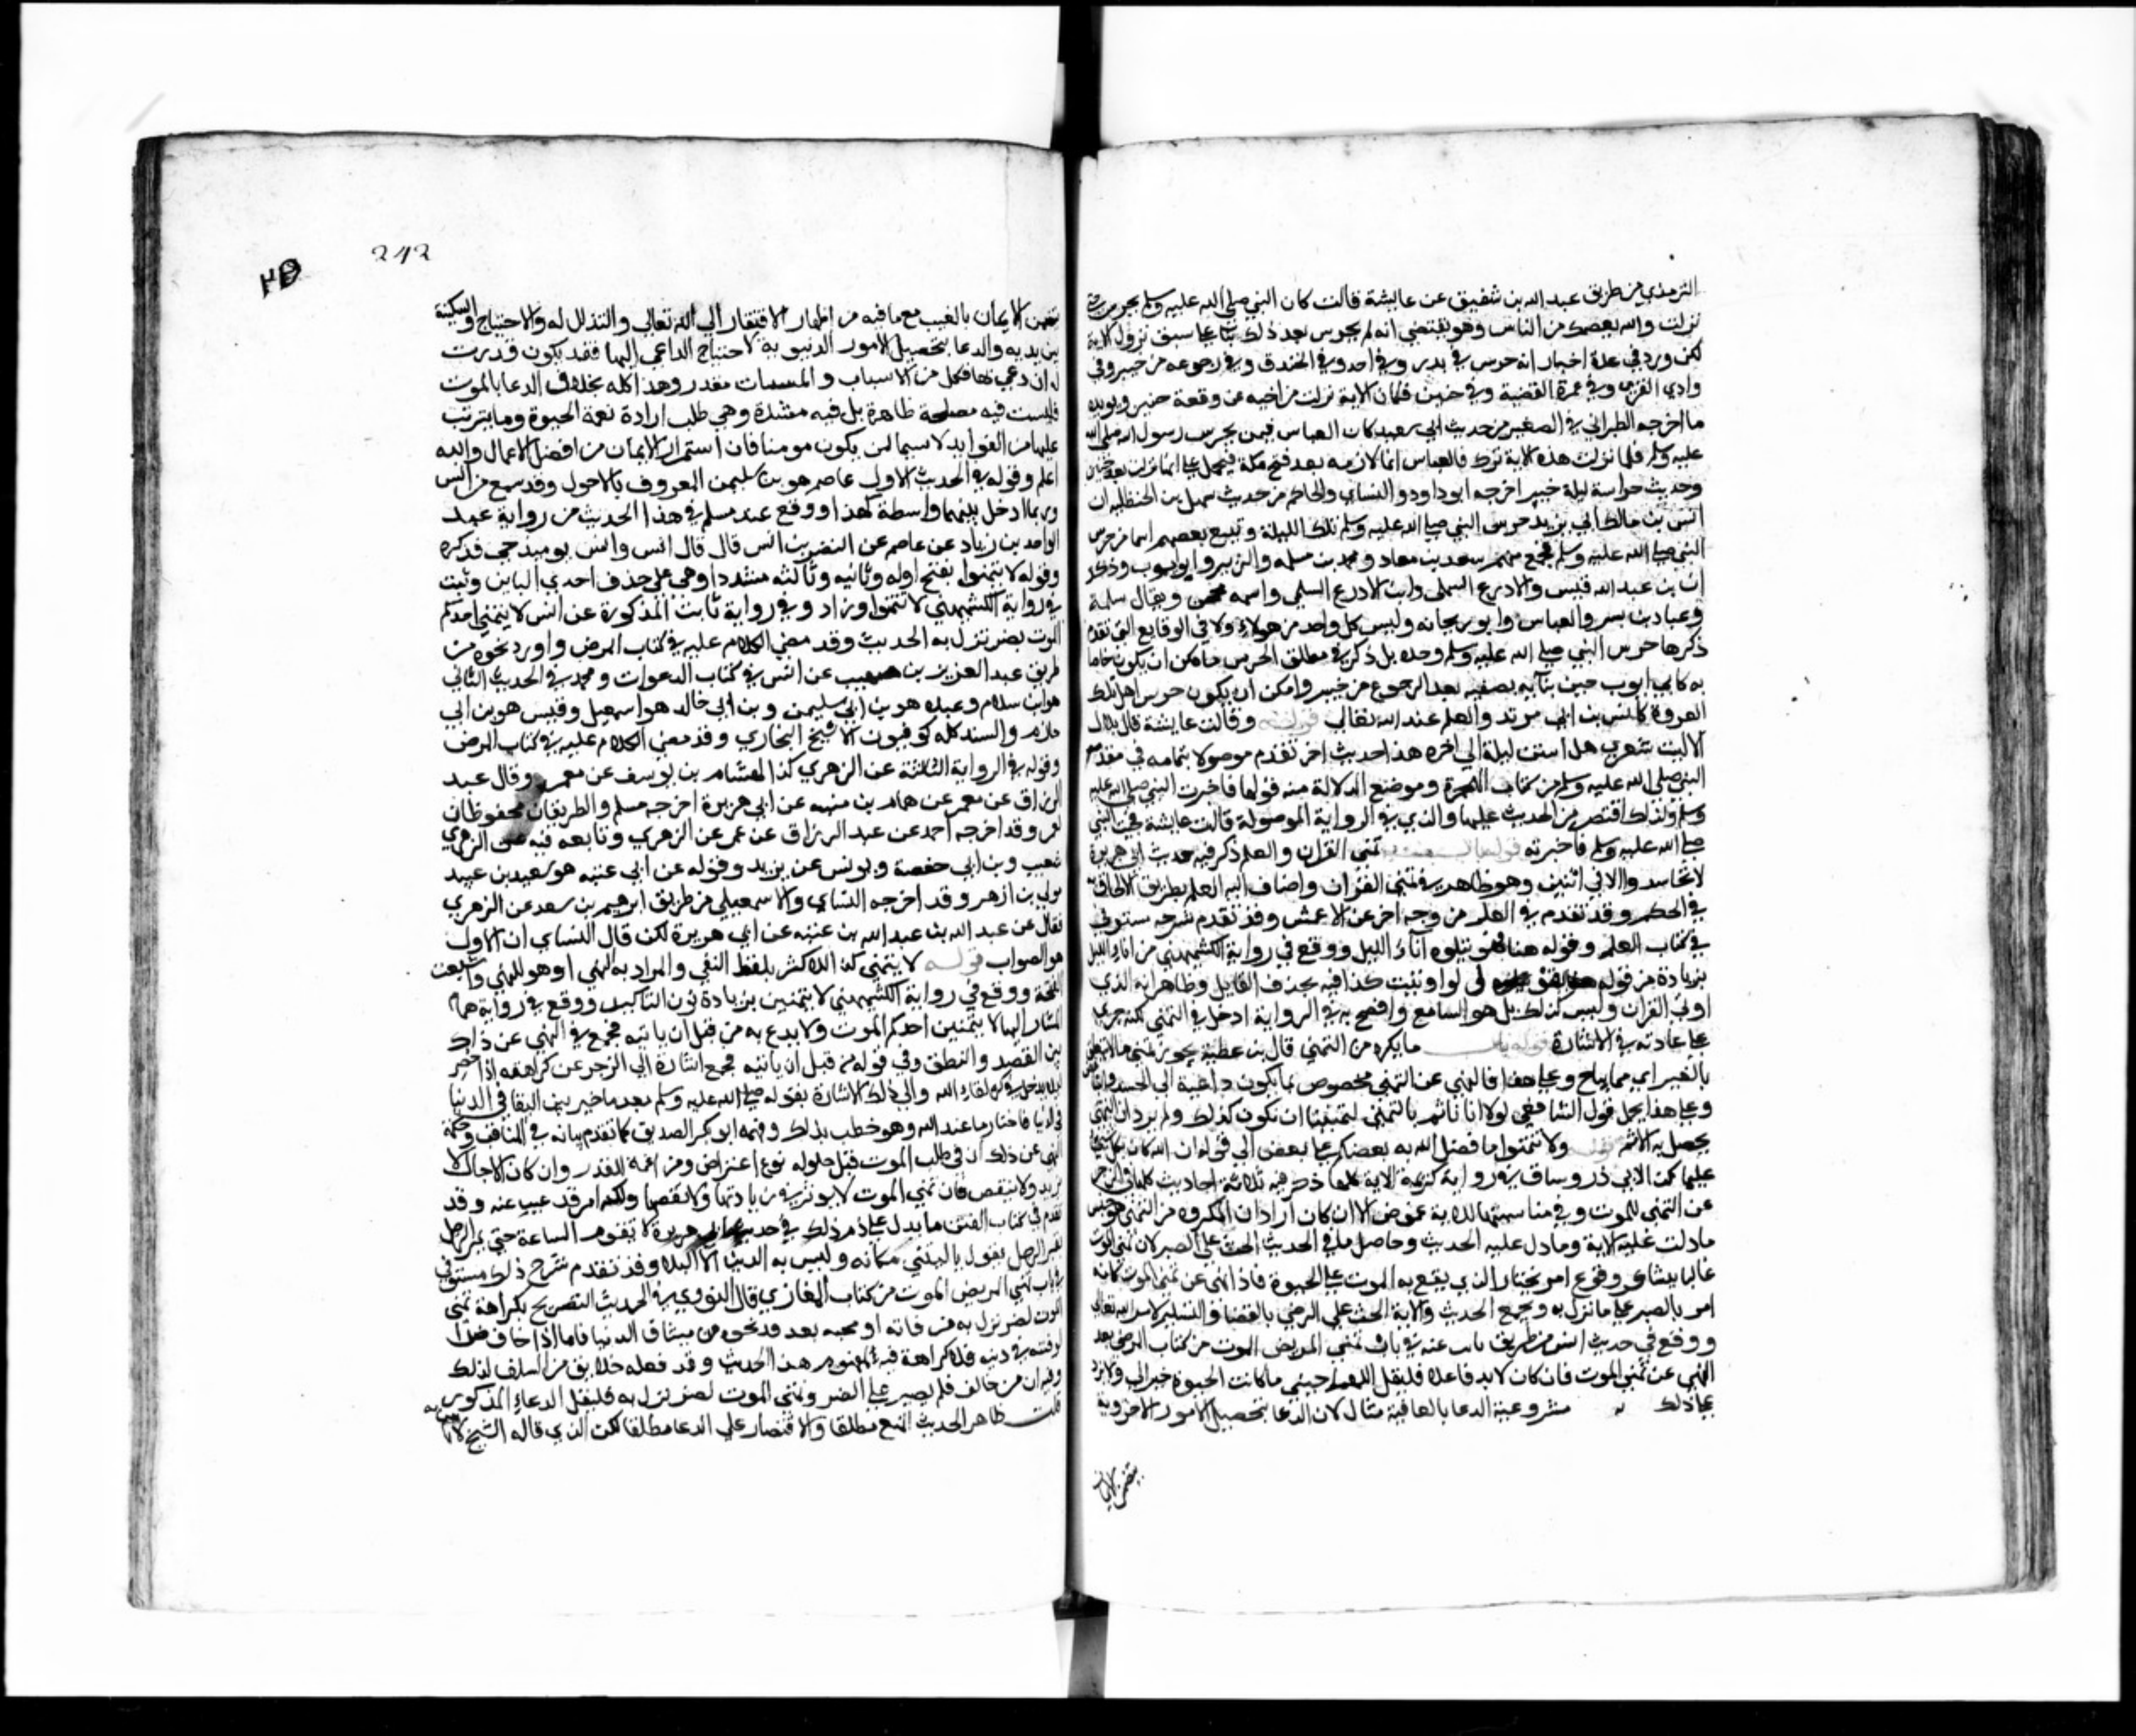 الترمذي من طريق عبد الله بن شقيق عن عايشة قالت كان النبي صلى الله عليه وسلم يحرس حتى
نزلت والله يعصمك من الناس وهو يقتضي انه لم يحرس بعد ذلك بناء على سبق نزول الاية
لكن ورد في عدة اخبار انه حرس في بدر وفي احد وفي الخندق وفي رجوعه من خيبر وفي
وادي القرى وفي عمرة القضية وفي حنين فكان الاية نزلت متراخية عن وقعة حنين ويويده
ما اخرجه الطبراني في الصغير من حديث ابي سعيد كان العباس فيمن يحرس رسول الله صلى الله
عليه وسلم فلما نزلت هذه الاية ترك فالعباس انما لازمه بعد فتح مكة فيحمل على انها نزلت بعد حنين
وحديث حراسة ليلة خيبر اخرجه ابو داود والنساي والحاكم من حديث سهل بن الحنظلية ان
انس بن مالك ابي يزيد حرس النبي صلى الله عليه وسلم تلك الليلة وتتبع بعضهم اسما من حرس
النبي صلى الله عليه وسلم فجمع منهم سعد بن معاد ومحمد بن مسلمه والزبير وابو ايوب وذكوا
ان بن عبد الله قيس والادرع السلمى وابن الادرع السلمي واسمه محجن ويقال سلمة
وعباد بن بسر والعباس وابو ريحانه وليس كل واحد من هولاء ولا في الوقايع التى تقدم
ذكرها حرس النبي صلى الله عليه وسلم وحده بل ذكر في مطلق الحرس فامكن ان يكون خاصا
به كابي ايوب حين بنايه بصفيه بعد الرجوع من خيبر وامكن ان يكون حرس اهل تلك
الغزوة كانس بن ابي مرثد والعلم عند الله تعالى قوله وقالت عايشة قال بلال
الا ليت شعري هل ابيتن ليلة الى اخره هذا حديث اخر تقدم موصولا بتمامه في مقدم
النبي صلى الله عليه وسلم من كتاب الهجرة وموضع الدلالة منه قولها فاخبرت النبي صلى الله عليه
وسلم ولذلك اقتصر من الحديث عليها والذي في الرواية الموصولة قالت عايشة فجئت النبي
صلى الله عليه وسلم فاخبرته قوله باب تمنى القران والعلم ذكر فيه حديث ابي هريرة
لا تحاسد الا في اثنين وهو ظاهر في تمنى القران واضاف اليه العلم بطريق الالحاق به
في الحكم وقد تقدم في العلم من وجه اخر عن الاعمش وقد تقدم شرحه مستوفى
في كتاب العلم وقوله هنا فهو يتلوه آناء الليل ووقع في رواية الكشميهني من اناء الليل
بزيادة من قوله يقول لو اوتيت كذا فيه بحذف القايل وظاهر انه الذي
اوتي القران وليس كذلك بل هو السامع وافصح به في الرواية ادخل في التمنى لكنه جرى
على عادته في الاشارة قوله باب ما يكره من التمني قال بن عطية يجوز تمنى ما لا يتعلق
بالغير اي مما يباح وعلى هذا فالنهي عن التمنى مخصوص بما يكون داعية الى الحسد والتباغض
وعلى هذا يحمل قول الشافعي لولا انا ناثم بالتمنى لتمنينا ان نكون كذلك ولم يرد ان التمنى
يحصل به الاثم قوله ولا تتمنوا ما فضل الله به بعضكم على بعض الى قوله ان الله كان بكل شيء
عليما كذا لابي ذر وساق في رواية كريمة الاية كلها ذكر فيه ثلاثة احاديث كلها في الزجر
عن التمنى للموت وفي مناسبتها للاية غموض الا ان كان اراد ان المكروه من التمنى هو جنس
ما دلت عليه الاية وما دل عليه الحديث وحاصل ما في الحديث الحث على الصبر لان تمنى الموت
غالبا ينشا عن وقوع امر يختار الذي يقع به الموت على الحيوة فاذا نهى عن تمنى الموت كانه
امر بالصبر على ما نزل به ويجمع الحديث والاية الحث على الرضى بالقضا والتسليم لامر الله تعالى
ووقع في حديث انس من طريق ثابت عنه في باب تمني المريض الموت من كتاب المرضى بعد
النهي عن تمنى الموت فان كان لابد فاعلا فليقل اللهم احيني ما كانت الحيوة خيرا لي ولا يرد
على ذلك مشروعية الدعا بالعافية مثالا لان الدعا بتحصيل الامور الاخروية
يتضمن الايمان
242
يتضمن الايمان بالغيب مع ما فيه من اظهار الافتقار الى الله تعالى والتذلل له والاحتياج والمسكنة
بين يديه والدعا بتحصيل الامور الدنيوية لاحتياج الداعي اليها فقد يكون قدرت
له ان دعى بها فكل من الاسباب والمسببات مقدر وهذا كله بخلاف الدعا بالموت
فليست فيه مصلحة ظاهرة بل فيه مفسدة وهي طلب ازادة نعمة الحيوة وما يترتب
عليها من الفوايد لا سيما لمن يكون مومنا فان استمرار الايمان من افضل الاعمال والله
اعلم وقوله في الحديث الاول عاصم هو بن سليمن المعروف بالاحول وقد سمع من انس
وربما ادخل بينهما واسطة كهذا ووقع عند مسلم في هذا الحديث من رواية عبد
الواحد بن زياد عن عاصم عن النضر بن انس قال قال انس وانس يوميذ حي فذكره
وقوله لا تتمنوا بفتح اوله وثانيه وثالثه مشددا وهي على حذف احدى التاين وثبت
في رواية الكشميهني لا تتمنوا وزاد وفي رواية ثابت المذكورة عن انس لا يتمنين احدكم
الموت بضر نزل به الحديث وقد مضى الكلام عليه في كتاب المرض واورد نحوه من
طريق عبد العزيز بن صهيب عن انس في كتاب الدعوات ومحمد في الحديث الثاني
هو ابن سلام وعبده هو بن سليمن وبن ابي خالد هو اسمعيل وقيس هو بن ابي
حازم والسند كله كوفيون الا شيخ البخاري وقد مضى الكلام عليه في كتاب المرض
وقوله في الرواية الثالثة عن الزهري كذا لهشام بن يوسف عن معمر وقال عبد
الرزاق عن معمر عن همام بن منبه عن ابي هريرة اخرجه مسلم والطريقان محفوظان
لمعمر وقد اخرجه احمد عن عبد الرزاق عن معمر عن الزهري وتابعه فيه عن الزهري
شعيب وبن ابي حفصة ويونس عن يزيد وقوله عن ابي عبيد هو سعيد بن عبيد
مولى بن ازهر وقد اخرجه النساي والاسمعيلي من طريق ابرهيم بن سعد عن الزهري
فقال عن عبيد الله بن عبد الله بن عتبه عن ابي هريرة لكن قال النساي ان الاول
هو الصواب قوله لا يتمنى كذا للاكثر بلفظ النفي والمراد به النهي او هو للنهي واشبعت
الفتحة ووقع في رواية الكشميهني لا يتمنين بزيادة نون التاكيد ووقع في رواية همام
المشار اليها لا يتمنين احدكم الموت ولا يدع به من قبل ان ياتيه فجمع في النهي عن ذلك
بين القصد والنطق وفي قوله من قبل ان ياتيه فجمع اشارة الى الزجر عن كراهته اذا حضر
ليلا يدخل فيمن كره لقاء الله والى ذلك الاشارة بقوله صلى الله عليه وسلم بعد ما خير بين البقا في الدنيا
فاختار ما عند الله وهو خطب بذلك وفهمه ابو بكر الصديق كما تقدم بيانه في المناقب وحكمة
النهي عن ذلك ان في طلب الموت قبل حلوله نوع اعتراض ومراغمة للقدر وان كان الاجال لا
تزيد ولا تنقص فان تمني الموت لا يوثر في زيادتها ولا نقصها ولكنه امر قد غيب عنه وقد
تقدم في كتاب الفتن ما يدل على ذم ذلك في حديث ابي هريرة لا تقوم الساعة حتى يمر الرجل
بقبر الرجل يقول يا ليتني مكانه وليس به الدين الا البلاء وقد تقدم شرح ذلك مستوفى
في باب تمني المريض الموت من كتاب المغازي قال النووي في الحديث التصريح بكراهة تمنى
الموت لضر نزل به من فاته او محبه بعدو ونحوه من مشاق الدنيا فاما اذا خاف ضررا
او فتنة في دينه فلا كراهة فيه لمفهوم هذا الحديث وقد فعله خلايق من السلف لذلك
وفيه ان من خالف فلم يصبر على الضر وتمنى الموت لضر نزل به فليقل الدعاء المذكور
قلت ظاهر الحديث المنع مطلقا والاقتصار على الدعا مطلقا لكن الذي قاله الشيخ لا باس به